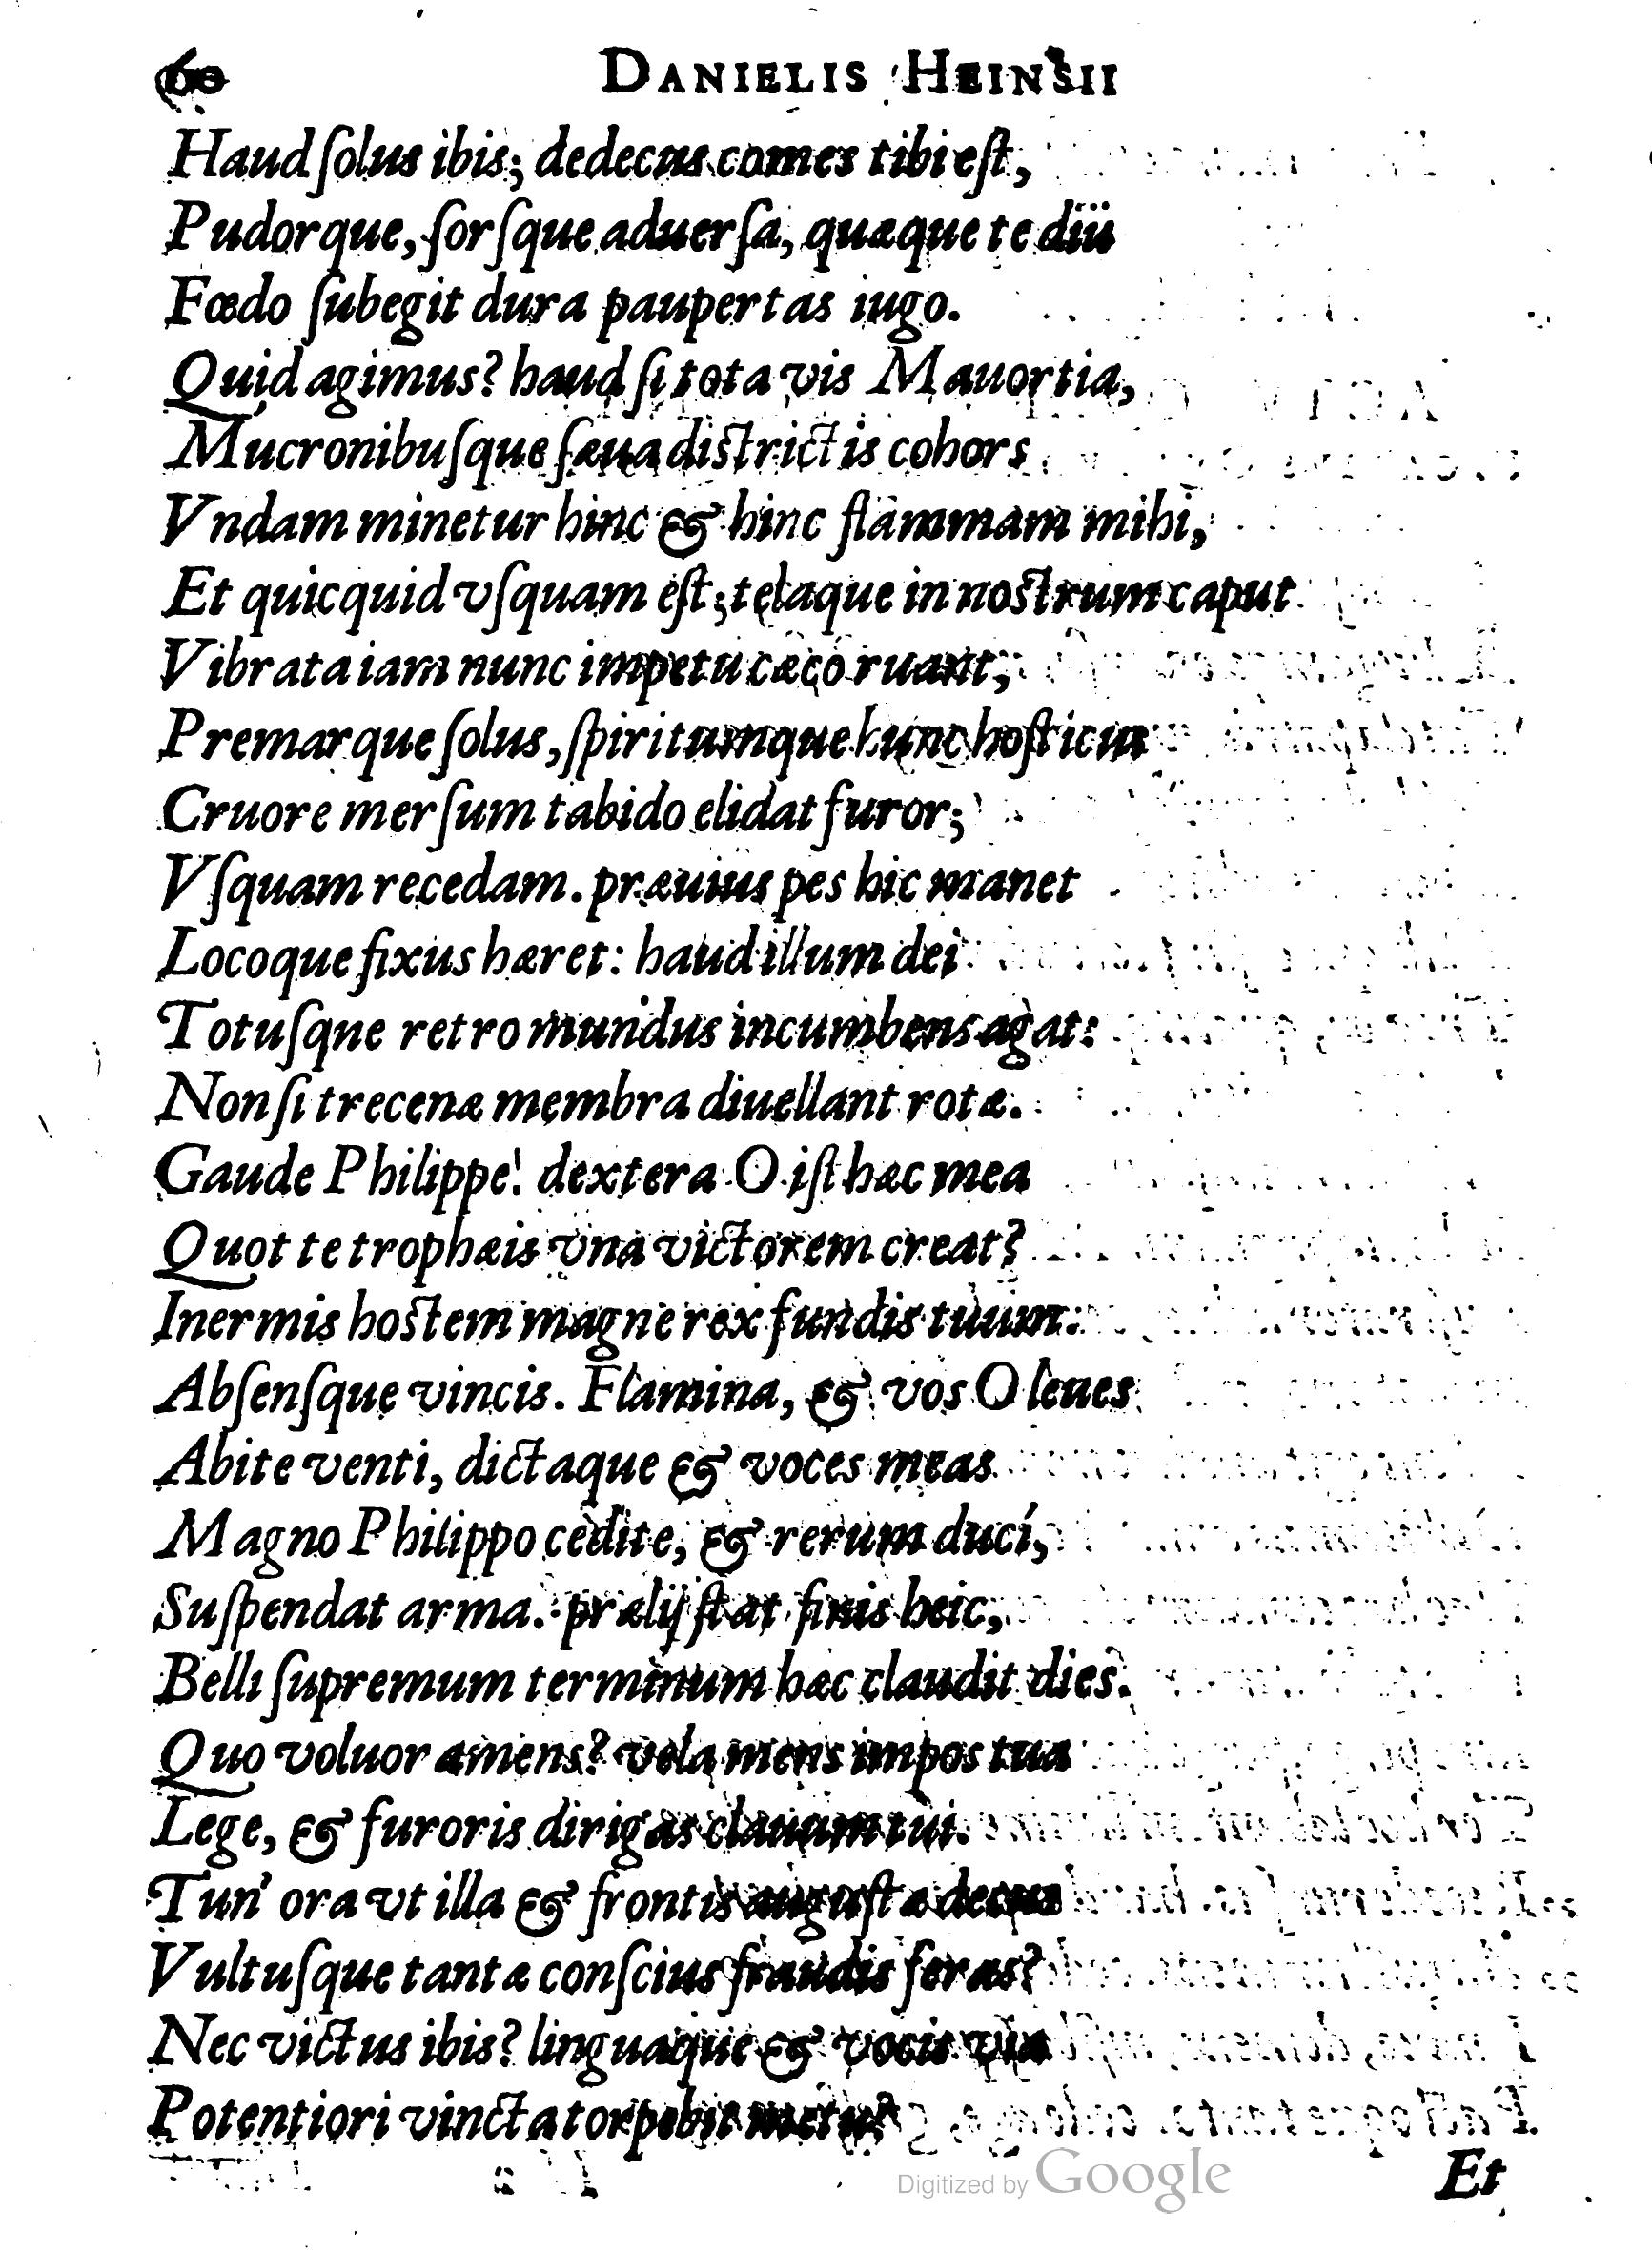 60 DANIELIS HEINSII
Haud ſolus ibis; dedecus comes tibi eſt,
Pudorque, ſorſque aduerſa, quæque te diü
Fœdo ſubegit dura paupertas iugo.
Quid agimus? haud ſi tota vis Mauortia,
Mucronibuſque ſæua diſtrictis cohors
Vndam minetur hinc & hinc flammam mihi,
Et quicquid vſquam eſt; telaque in noſtrum caput
Vibrata iam nunc impetu cæco ruant;
Premarque ſolus, ſpiritumque hunc hoſticus
Cruore merſum tabido elidat furor;
Vſquam recedam. præuius pes hic manet
Locoque fixus hæret: haud illum dei
Totuſqne retro mundus incumbens agat:
Non ſi trecenæ membra diuellant rotæ.
Gaude Philippe! dextera O iſthæc mea
Quot te trophæis vna victorem creat?
Inermis hoſtem magne rex fundis tuum:
Abſenſque vincis. Flamina, & vos O leues
Abite venti, dictaque & voces meas
Magno Philippo cedite, & rerum duci,
Suſpendat arma. prælij ſtat finis heic,
Belli ſupremum terminum hæc claudit dies.
Quo voluor amens? vela mens impos tua
Lege, & furoris dirigas clauum tui.
Tun' ora vt illa & frontis auguſtæ decus
Vultuſque tantæ conſcius fraudis feras?
Nec victus ibis? linguaque & vocis via
Potentiori vincta torpebit metu?
Et
Digitized by Google